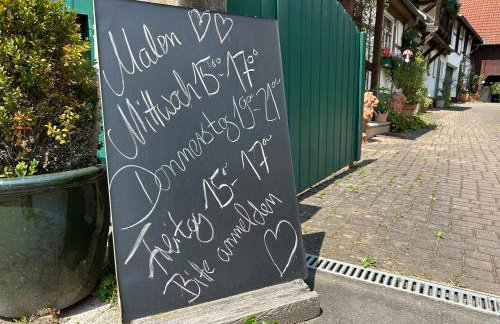 Malen ♡♡
Mittwoch 15⁰⁰-17⁰⁰
Donnerstag 19⁰⁰-21⁰⁰
Freitag 15⁰⁰-17⁰⁰
Bitte anmelden
♡